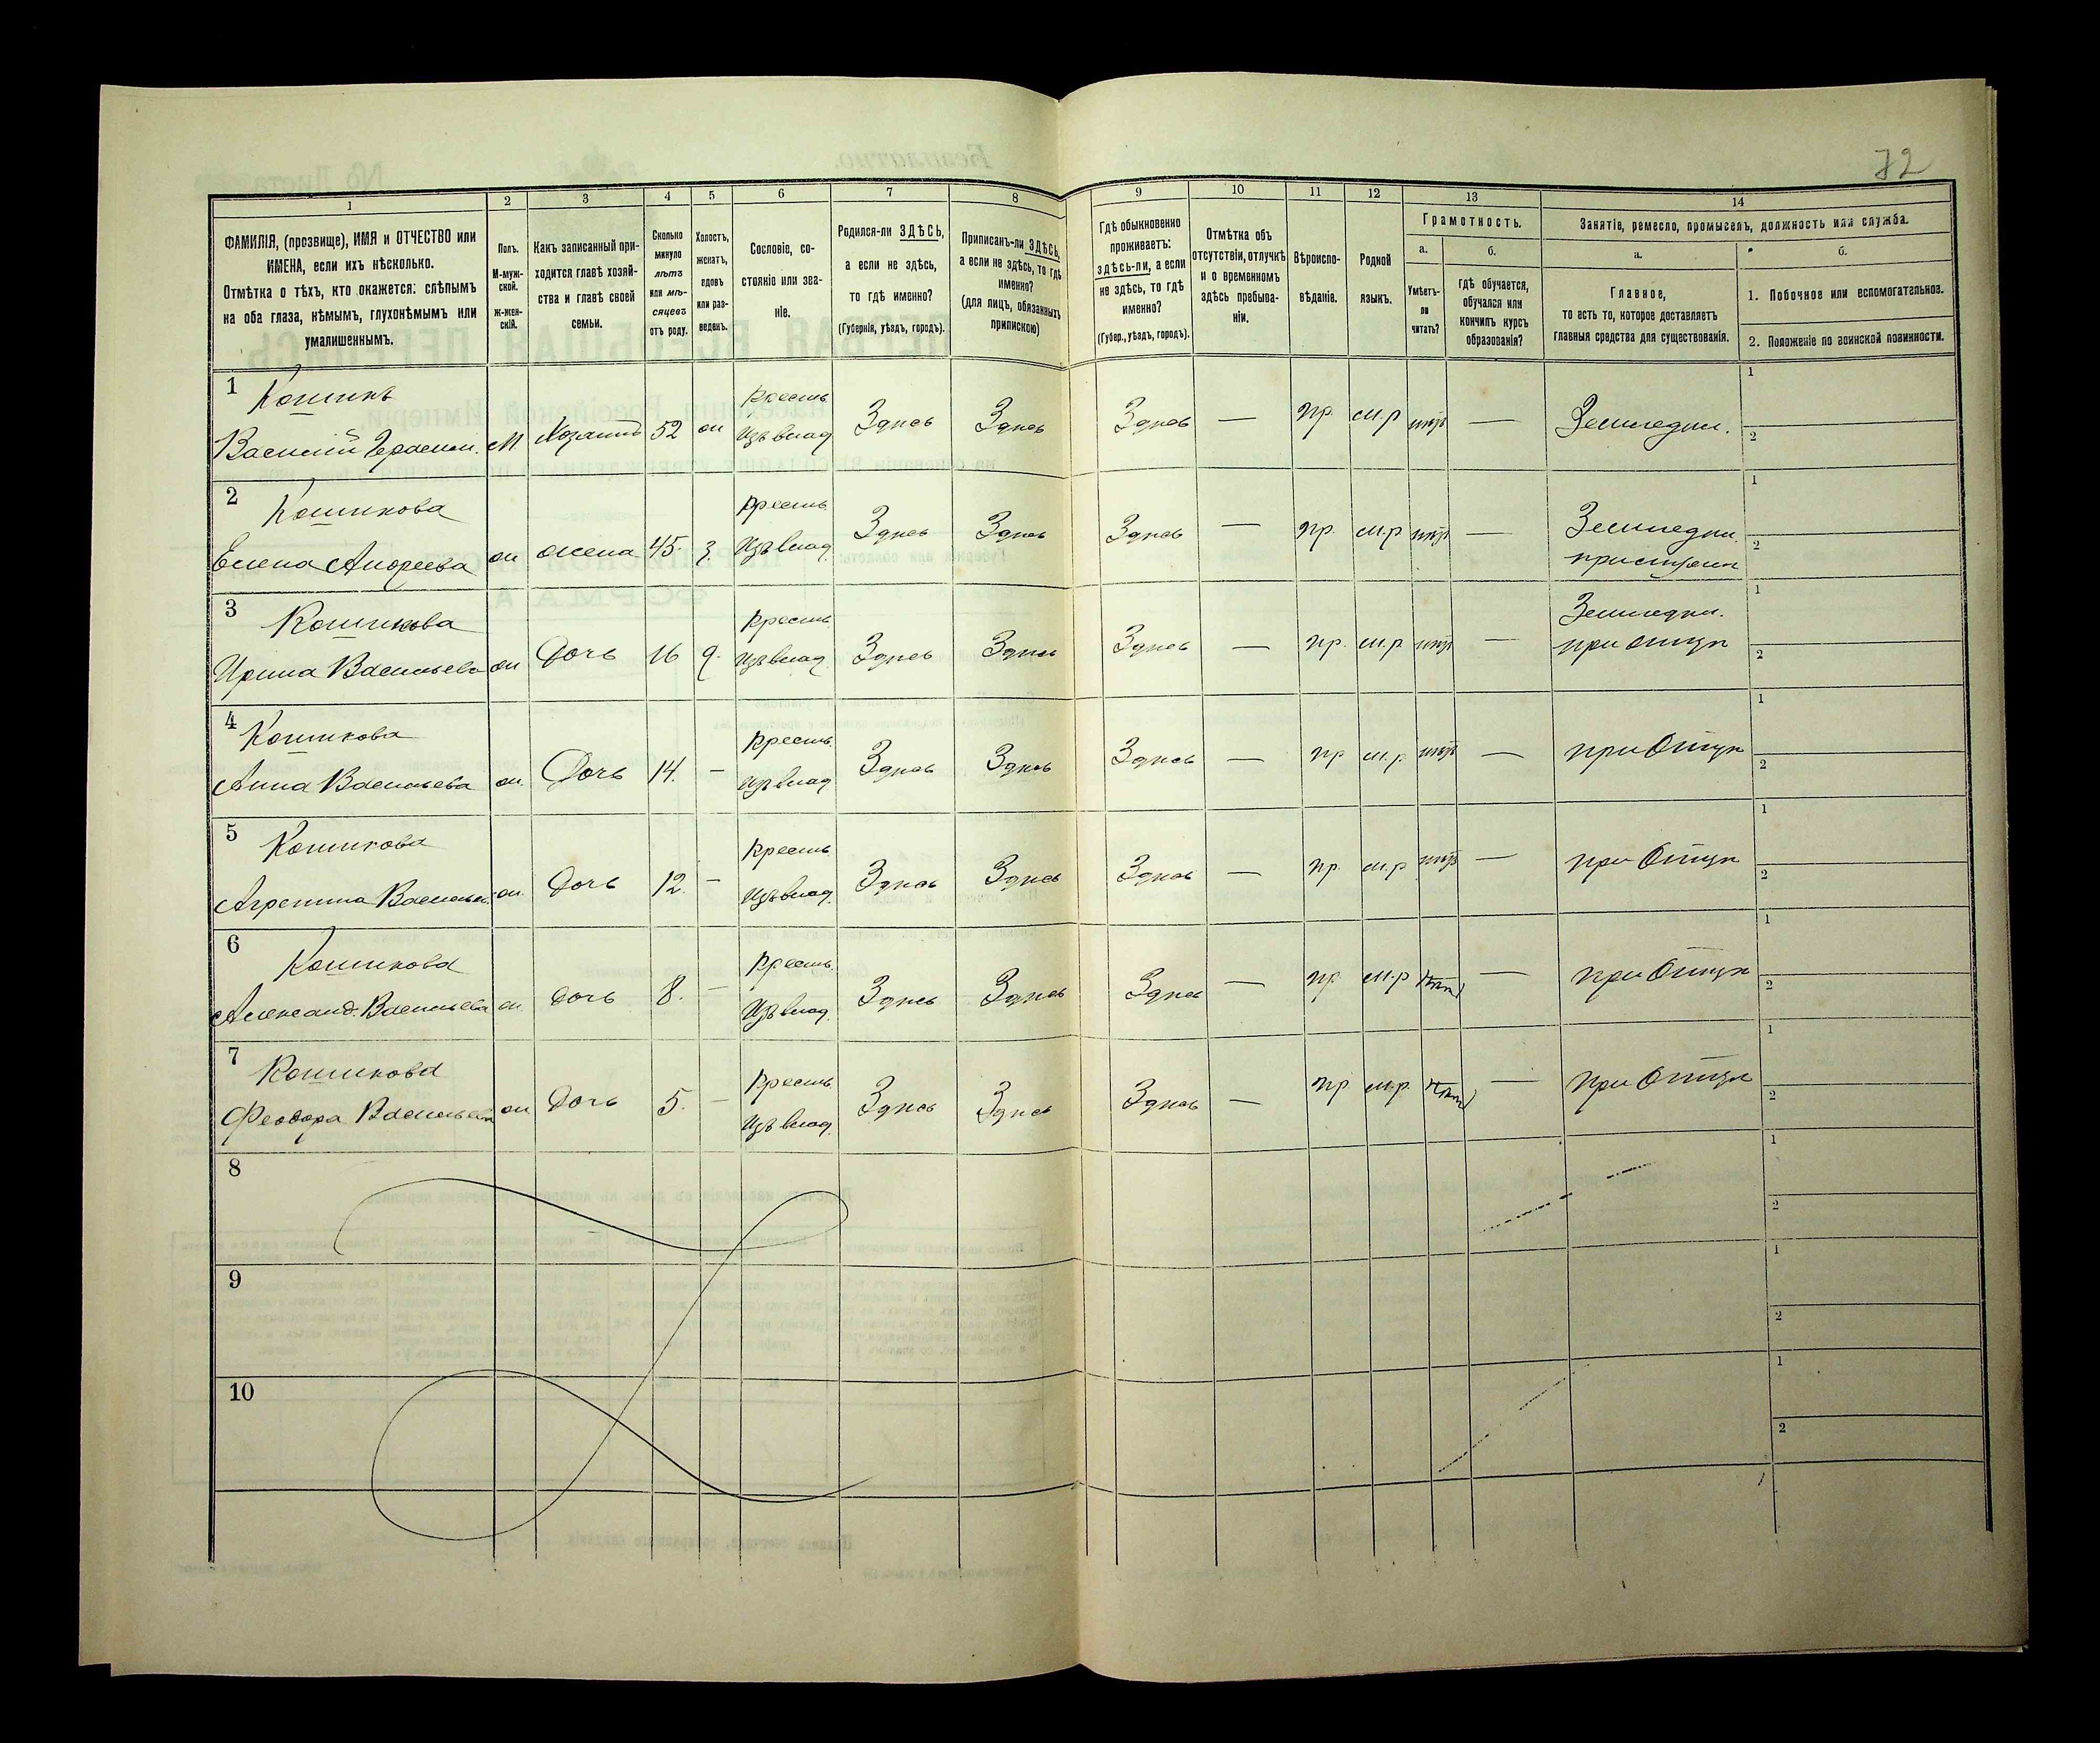 72
1 2 3 4 5 6 7 8 9 10 11 12 13 14
ФАМИЛІЯ, (прозвище), ИМЯ и ОТЧЕСТВО или
ИМЕНА, если ихъ нѣсколько.
Отмѣтка о тѣхъ, кто окажется: слѣпымъ
на оба глаза, нѣмымъ, глухонѣмымъ или
умалишеннымъ.
Полъ.
М-муж-
ской.
Ж-жен-
скій.
Какъ записанный при-
ходится главѣ хозяй-
ства и главѣ своей
семьи.
Сколько
минуло
лѣтъ
или мѣ-
сяцевъ
отъ роду.
Холостъ,
женатъ,
вдовъ
или раз-
веденъ.
Сословіе, со-
стояніе или зва-
ніе.
Родился-ли ЗДѢСЬ,
а если не здѣсь,
то гдѣ именно?
(Губернія, уѣздъ, городъ).
Приписанъ-ли ЗДѢСЬ,
а если не здѣсь, то гдѣ
именно?
(для лицъ, обязанныхъ
припискою)
Гдѣ обыкновенно
проживаетъ:
здѣсь-ли, а если
не здѣсь, то гдѣ
именно?
(Губер., уѣздъ, городъ).
Отмѣтка объ
отсутствіи, отлучкѣ
и о временномъ
здѣсь пребыва-
ніи.
Вѣроиспо-
вѣданіе.
Родной
языкъ.
Грамотность.
а.
Умѣетъ-
ли
читать?
б.
гдѣ обучается,
обучался или
кончилъ курсъ
образованія?
Занятіе, ремесло, промыселъ, должность или служба.
а.
Главное,
то есть то, которое доставляетъ
главныя средства для существованія.
б.
1. Побочное или вспомогательное.
2. Положеніе по воинской повинности.
1 Кошикъ Крест.
Василій Герасим. М. Хозяинъ 52 ж Изъ влад. Здѣсь Здѣсь Здѣсь — пр. м.р нѣтъ — Земледѣл. 1 2
2 Кошикова Крест.
Елена Андреева ж жена 45. з. Изъ влад. Здѣсь Здѣсь Здѣсь — пр. м.р нѣтъ — Земледѣл. 1 2
при мужѣ
3 Кошикова Крест. Земледѣл.
Ирина Васильева ж Дочь 16 д. Изъ влад. Здѣсь Здѣсь Здѣсь — пр. м.р нѣтъ — при отцѣ 1 2
4 Кошикова Крест.
Анна Васильева ж. Дочь 14. — Изъ влад. Здѣсь Здѣсь Здѣсь — пр м.р нѣтъ — при Отцѣ 1 2
5 Кошикова Крест.
Агрепина Васильев. ж. Дочь 12. — Изъ влад. Здѣсь Здѣсь Здѣсь — пр. м.р нѣтъ — при Отцѣ 1 2
6 Кошикова Крест.
Александ. Васильева ж. Дочь 8. — Изъ влад. Здѣсь Здѣсь Здѣсь — пр м.р нѣтъ — при Отцѣ 1 2
7 Кошикова Крест.
Феодора Васильева ж Дочь 5. — Изъ влад. Здѣсь Здѣсь Здѣсь — пр м.р. нѣтъ — при Отцѣ 1 2
8 1 2
9 1 2
10 1 2